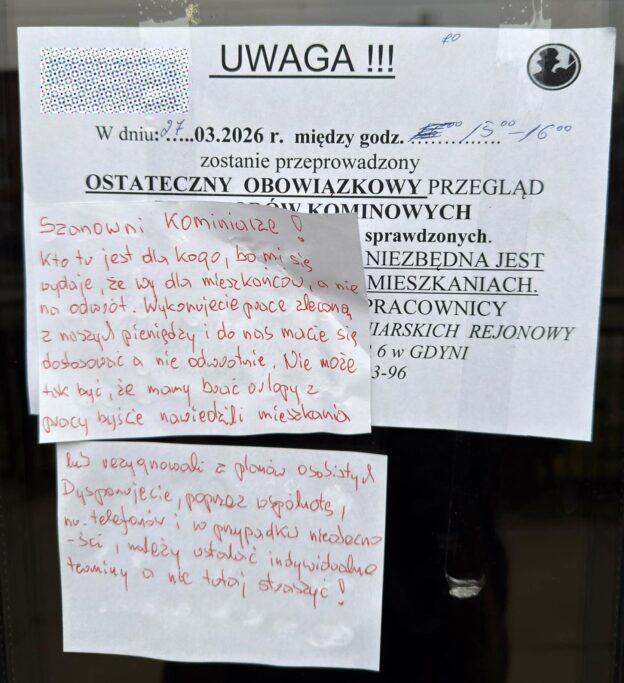 UWAGA !!!
W dniu: 27.....03.2026 r. między godz. ............... 15⁰⁰-16⁰⁰
zostanie przeprowadzony
OSTATECZNY OBOWIĄZKOWY PRZEGLĄD
KOMINOWYCH
sprawdzonych.
NIEZBĘDNA JEST
MIESZKANIACH.
PRACOWNICY
NIARSKICH REJONOWY
6 w GDYNI
3-96
Szanowni Kominiarze !
Kto tu jest dla kogo, bo mi się
wydaje, że wy dla mieszkańców, a nie
na odwrót. Wykonujecie pracę zleconą
z naszych pieniędzy i do nas macie się
dostosować a nie odwrotnie. Nie może
tak być, że mamy brać urlopy z
pracy byście nawiedzili mieszkania
lub rezygnowali z planów osobistych
Dysponujecie, poprzez wspólnotę,
nr. telefonów i w przypadku nieobecno
-ści, należy ustalać indywidualne
terminy a nie tutaj straszyć !